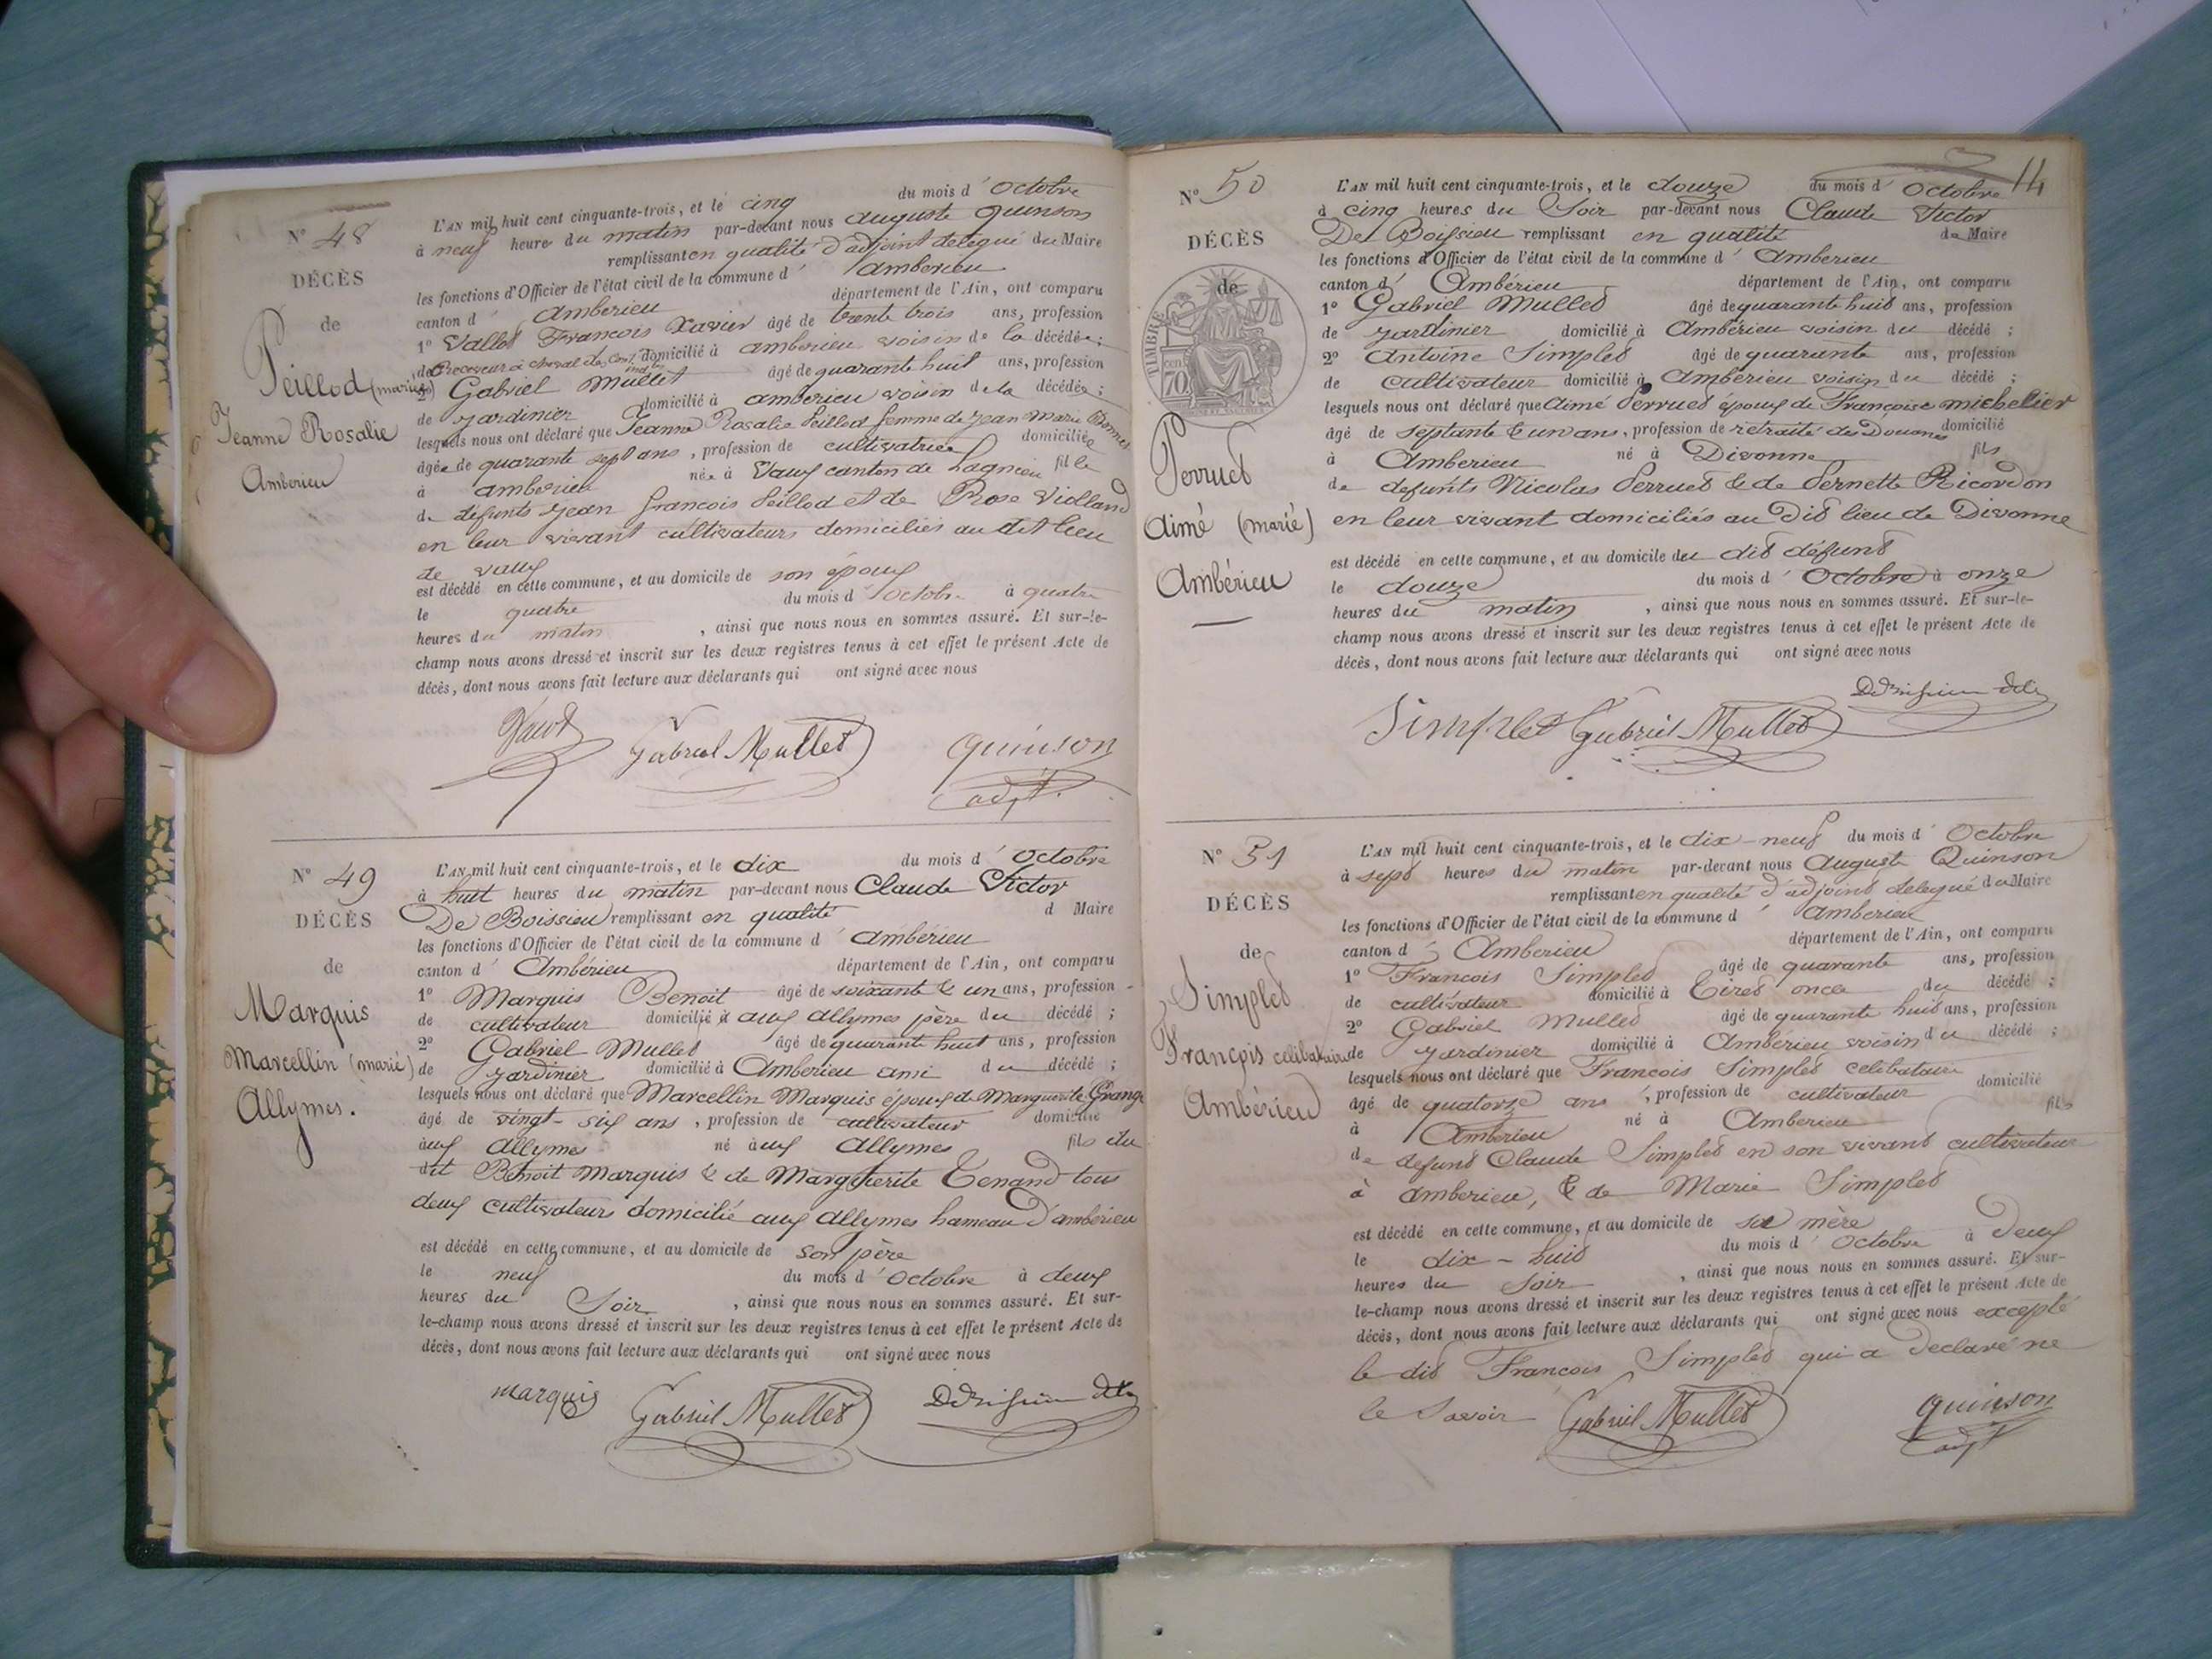 N° 48
DÉCÈS
de
Peillod (mariée)
Jeanne Rosalie
Amberieu
L'AN mil huit cent cinquante-trois, et le cinq du mois d' Octobre
à neuf heures du matin par-devant nous auguste Quinson
remplissant en qualité d'adjoint delegué du Maire
les fonctions d'Officier de l'état civil de la commune d' amberieu
canton d' amberieu département de l'Ain, ont comparu
1° Vallod François Xavier âgé de trente trois ans, profession
de Receveur à cheval des domicilié à amberieu voisin de la décédée ;
2° Gabriel Mullet âgé de quarante huit ans, profession
de jardinier domicilié à amberieu voisin de la décédée ;
lesquels nous ont déclaré que Jeanne Rosalie Peillod femme de Jean Marie Bonnet
âgée de quarante sept ans, profession de cultivatrice domiciliée
à amberieu née à Vaux canton de Lagnieu fille
de defunts Jean françois Peillod et de Rose Violland
en leur vivant cultivateurs domiciliés au dit lieu
de vaux
est décédé en cette commune, et au domicile de son époux
le quatre du mois d' Octobre à quatre
heures du matin, ainsi que nous nous en sommes assuré. Et sur-le-
champ nous avons dressé et inscrit sur les deux registres tenus à cet effet le présent Acte de
décès, dont nous avons fait lecture aux déclarants qui ont signé avec nous
Gabriel Mullet quinson
adjt.
N° 49
DÉCÈS
de
Marquis
Marcellin (marié)
Allymes.
L'AN mil huit cent cinquante-trois, et le dix du mois d' Octobre
à huit heures du matin par-devant nous Claude Victor
De Boissieu remplissant en qualité d Maire
les fonctions d'Officier de l'état civil de la commune d' ambérieu
canton d' Ambérieu département de l'Ain, ont comparu
1° Marquis Benoit âgé de soixante & un ans, profession
de cultivateur domicilié à aux allymes père du décédé ;
2° Gabriel Mullet âgé de quarante huit ans, profession
de jardinier domicilié à Amberieu ami du décédé ;
lesquels nous ont déclaré que Marcellin Marquis époux de Marguerite Grange
âgé de vingt-six ans, profession de cultivateur domicilié
aux allymes né aux allymes fils du
dit Benoit Marquis & de Margherite Tenand tous
deux cultivateurs domicilié aux allymes hameau d'ambérieu
est décédé en cette commune, et au domicile de son père
le neuf du mois d' Octobre à deux
heures du Soir, ainsi que nous nous en sommes assuré. Et sur-
le-champ nous avons dressé et inscrit sur les deux registres tenus à cet effet le présent Acte de
décès, dont nous avons fait lecture aux déclarants qui ont signé avec nous
marquis Gabriel Mullet
14
N° 50
DÉCÈS
de
TIMBRE
70
Perrued
Aimé (marié)
Ambérieu
L'AN mil huit cent cinquante-trois, et le douze du mois d' Octobre
à cinq heures du Soir par-devant nous Claude Victor
De Boissieu remplissant en qualité de Maire
les fonctions d'Officier de l'état civil de la commune d' Amberieu
canton d' Ambérieu département de l'Ain, ont comparu
1° Gabriel Mulled âgé de quarante huit ans, profession
de jardinier domicilié à Ambérieu voisin du décédé ;
2° Antoine Simpled âgé de quarante ans, profession
de cultivateur domicilié à Ambérieu voisin du décédé ;
lesquels nous ont déclaré que Aimé Perrued époux de Françoise michelier
âgé de septante & un ans, profession de retraité des Douanes domicilié
à Amberieu né à Divonne fils
de defunts Nicolas Perrued & de Pernette Ricordon
en leur vivant domiciliés au Dit lieu de Divonne
est décédé en cette commune, et au domicile du dit défunt
le douze du mois d' Octobre à onze
heures du matin, ainsi que nous nous en sommes assuré. Et sur-le-
champ nous avons dressé et inscrit sur les deux registres tenus à cet effet le présent Acte de
décès, dont nous avons fait lecture aux déclarants qui ont signé avec nous
Simpled Gabriel Mulled
N° 51
DÉCÈS
de
Simpled
François célibataire
Ambérieu
L'AN mil huit cent cinquante-trois, et le dix-neuf du mois d' Octobre
à sept heures du matin par-devant nous Auguste Quinson
remplissant en qualité d'adjoint delegué du Maire
les fonctions d'Officier de l'état civil de la commune d' amberieu
canton d' Amberieu département de l'Ain, ont comparu
1° François Simpled âgé de quarante ans, profession
de cultivateur domicilié à Tired oncle du décédé ;
2° Gabriel Mulled âgé de quarante huit ans, profession
de jardinier domicilié à Ambérieu voisin du décédé ;
lesquels nous ont déclaré que François Simpled celibataire
âgé de quatorze ans, profession de cultivateur domicilié
à Amberieu né à Amberieu fils
de defund Claude Simpled en son vivant cultivateur
à amberieu, & de Marie Simpled
est décédé en cette commune, et au domicile de sa mère
le dix-huit du mois d' Octobre à deux
heures du Soir, ainsi que nous nous en sommes assuré. Et sur-
le-champ nous avons dressé et inscrit sur les deux registres tenus à cet effet le présent Acte de
décès, dont nous avons fait lecture aux déclarants qui ont signé avec nous excepté
le dit François Simpled qui a Declaré ne
le Savoir Gabriel Mulled quinson
adjt